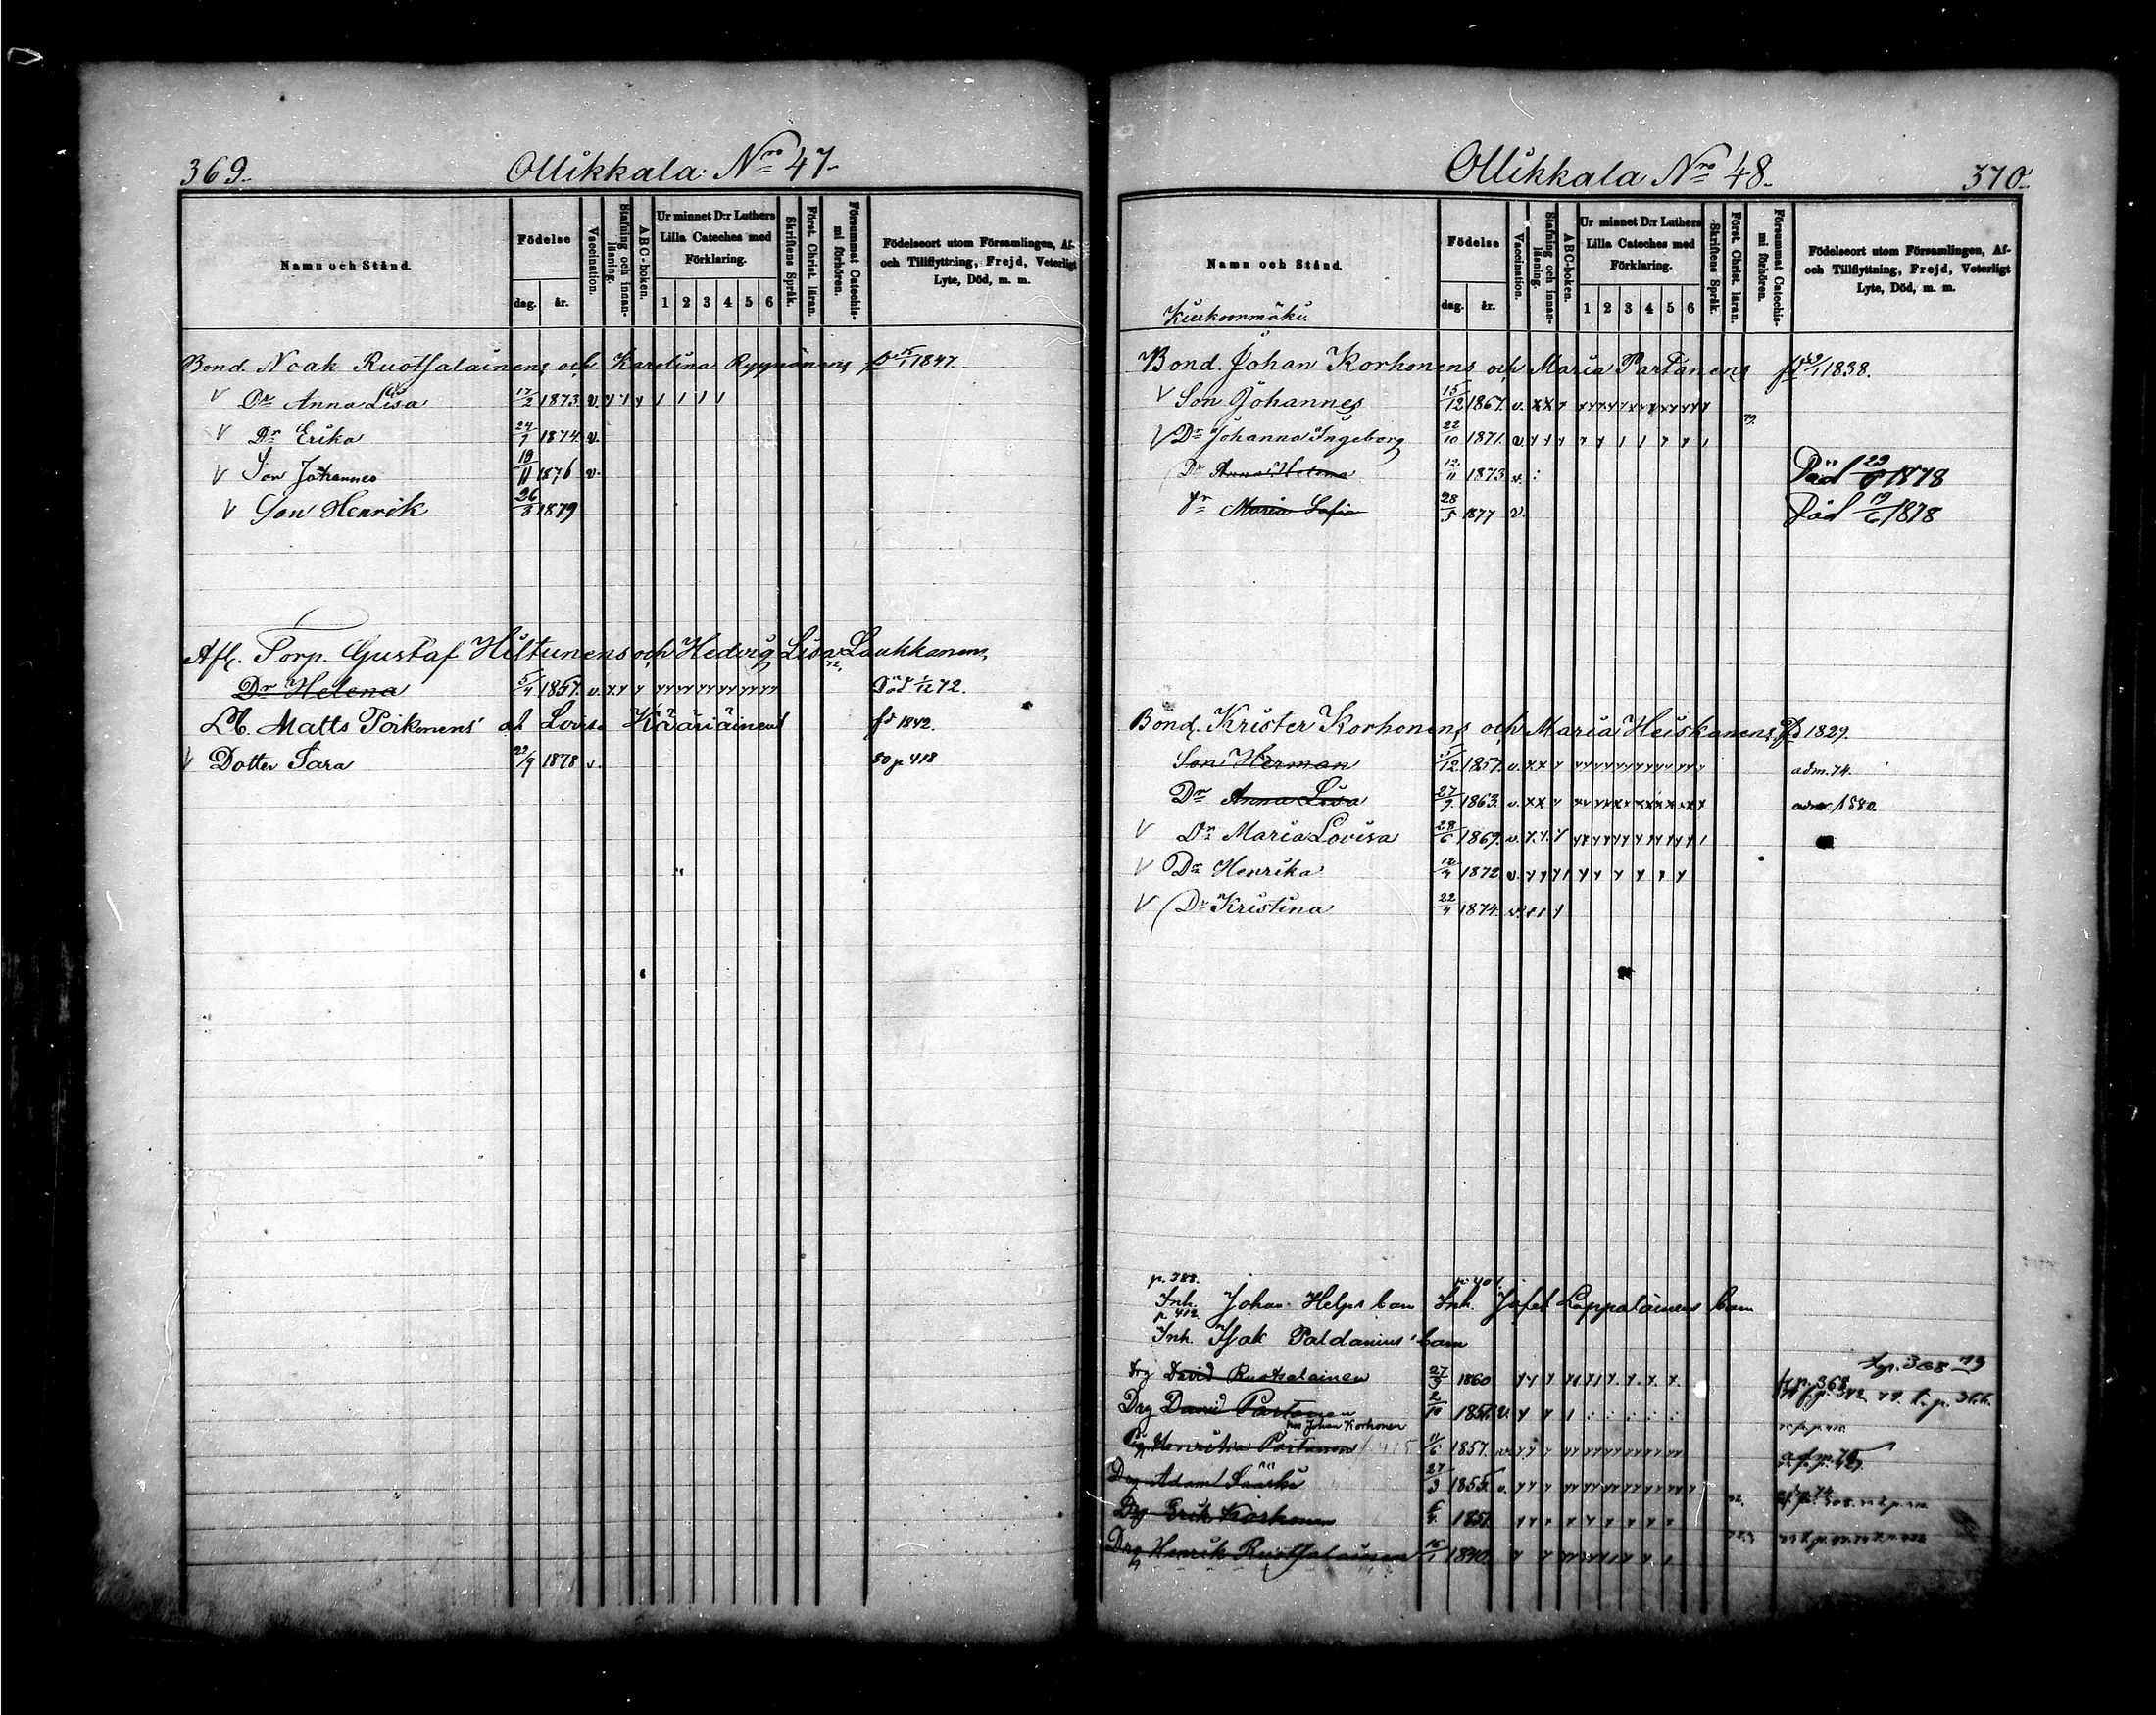 369.
Ollikkala Nro 47.
Namn och Stånd.
Födelse
dag. år.
Vaccination.
Stafning och innanläsning.
ABC-boken.
Ur minnet D:r Luthers Lilla Cateches med Förklaring.
1 2 3 4 5 6
Skriftens Språk.
Först. Christ. läran.
Försummat Catechismi förhören.
Födelseort utom Församlingen, Af- och Tillflyttning, Frejd, Veterligt Lyte, Död, m. m.
Bond. Noak Ruotsalainens och Karolina Ryynänens 1847.
V Dr Anna Lisa 17/2 1873. v.
V Dr Erika 24/7 1874. v.
V Son Johannes 18/11 1876 v.
V Son Henrik 26/3 1879
Afl. Torp. Gustaf Hiltunens och Hedvig Lisa Laukkanens
Dr Helena 5/4 1857. v. Död 1/12 72.
Matts Poikonens o Lovisa Kääriäinens fd 1842.
V Dotter Sara 22/9 1878 v. 80 p 418
Ollikkala Nro 48.
370.
Namn och Stånd.
Kiukoonmäki.
Födelse
dag. år.
Vaccination.
Stafning och innanläsning.
ABC-boken.
Ur minnet D:r Luthers Lilla Cateches med Förklaring.
1 2 3 4 5 6
Skriftens Språk.
Först. Christ. läran.
Försummat Catechismi förhören.
Födelseort utom Församlingen, Af- och Tillflyttning, Frejd, Veterligt Lyte, Död, m. m.
Bond. Johan Korhonens och Maria Partanens 1838.
V Son Johannes 15/12 1867. v.
V Dr Johanna Ingeborg 22/10 1871. v. 79.
Dr Anna Helena 12/11 1873 v. Död 1878
Dr Maria Sofia 28/5 1877 v. Död 19/6 1878
Bond. Krister Korhonens och Maria Heiskanens fd 1829.
Son Herman 5/12 1857. v. adm. 74.
Dr Anna Lisa 27/9 1863. v. adm. 1880.
V Dr Maria Lovisa 28/6 1869. v.
V Dr Henrika 12/4 1872 v.
V Dr Kristina 22/4 1874. v.
p. 388. p. 401.
Inh. Johan Helps barn Inh. Jafet Lappalainens barn
p. 412.
Inh. Isak Paldanius' barn
Drg David Ruotsalainen 27/3 1860 p. 368
Drg David Partanen 2/10 1857. v.
hos Johan Korhonen
Henrika Partanen 11/6 1857.
Drg Adam Sääski 27/3 1855. v.
Drg Erik Korhonen 1857.
Drg Henrik Ruotsalainen 1840.